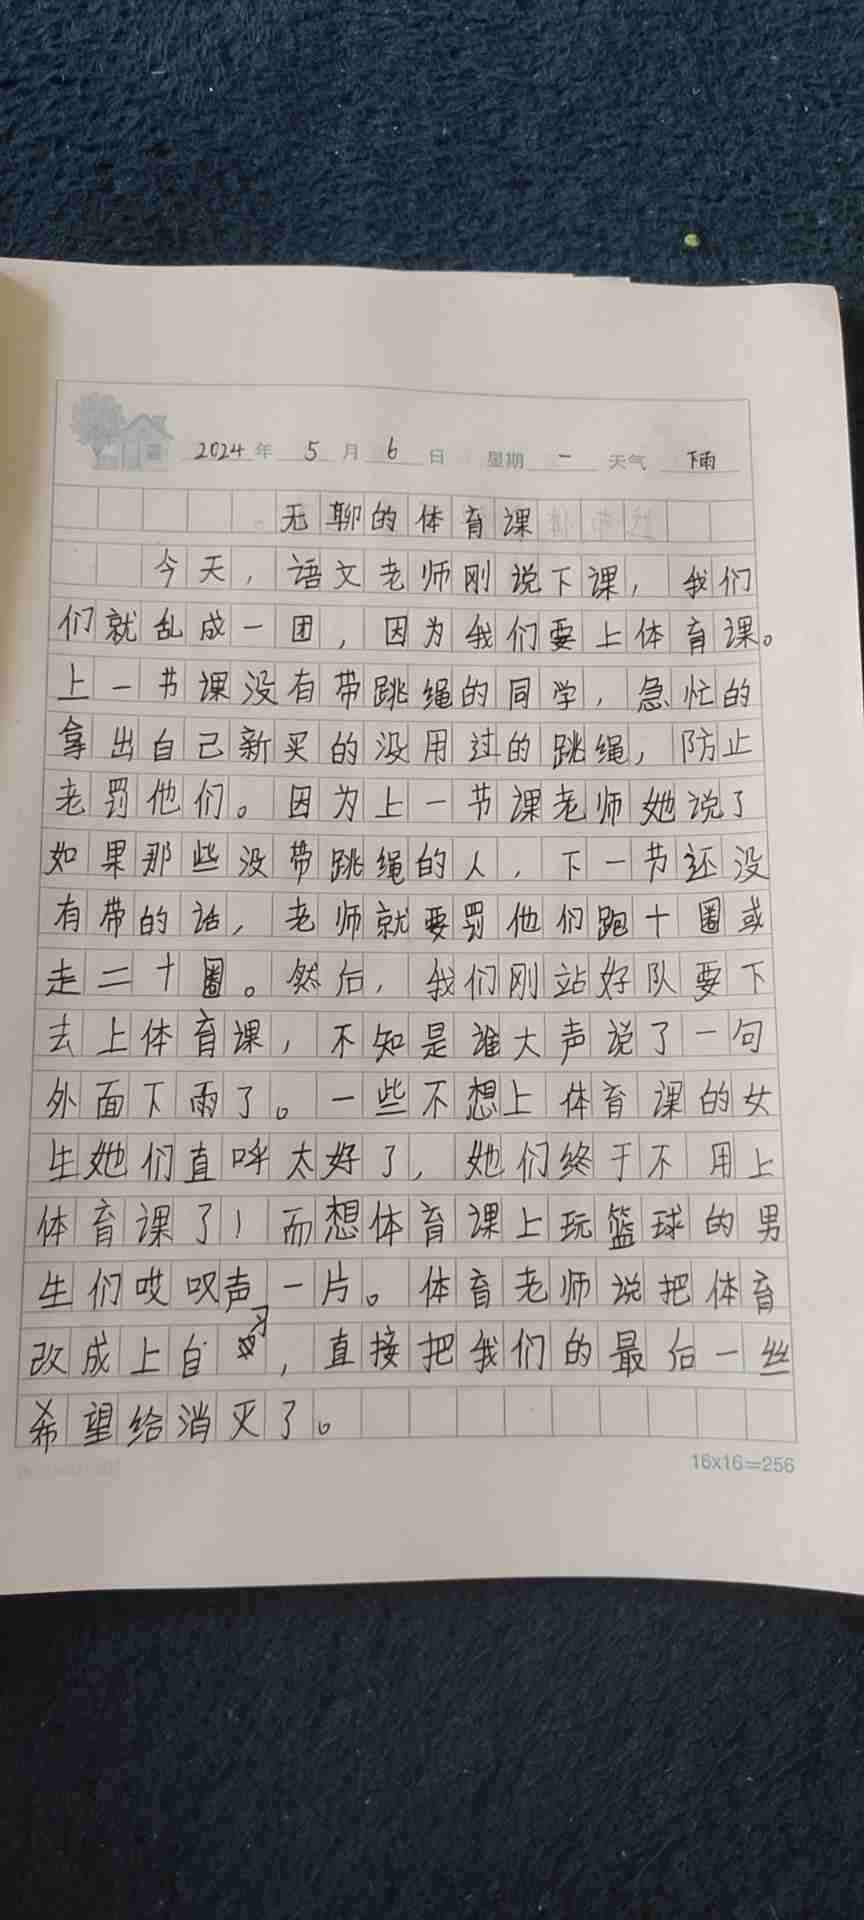 2024年 5月 6日 星期 一 天气 下雨
无聊的体育课
今天，语文老师刚说下课，我们
们就乱成一团，因为我们要上体育课。
上一节课没有带跳绳的同学，急忙的
拿出自己新买的没用过的跳绳，防止
老罚他们。因为上一节课老师她说了
如果那些没带跳绳的人，下一节还没
有带的话，老师就要罚他们跑十圈或
走二十圈。然后，我们刚站好队要下
去上体育课，不知是谁大声说了一句
外面下雨了。一些不想上体育课的女
生她们直呼太好了，她们终于不用上
体育课了！而想体育课上玩篮球的男
生们哎叹声一片。体育老师说把体育
改成上自习，直接把我们的最后一丝
希望给消灭了。
16x16=256